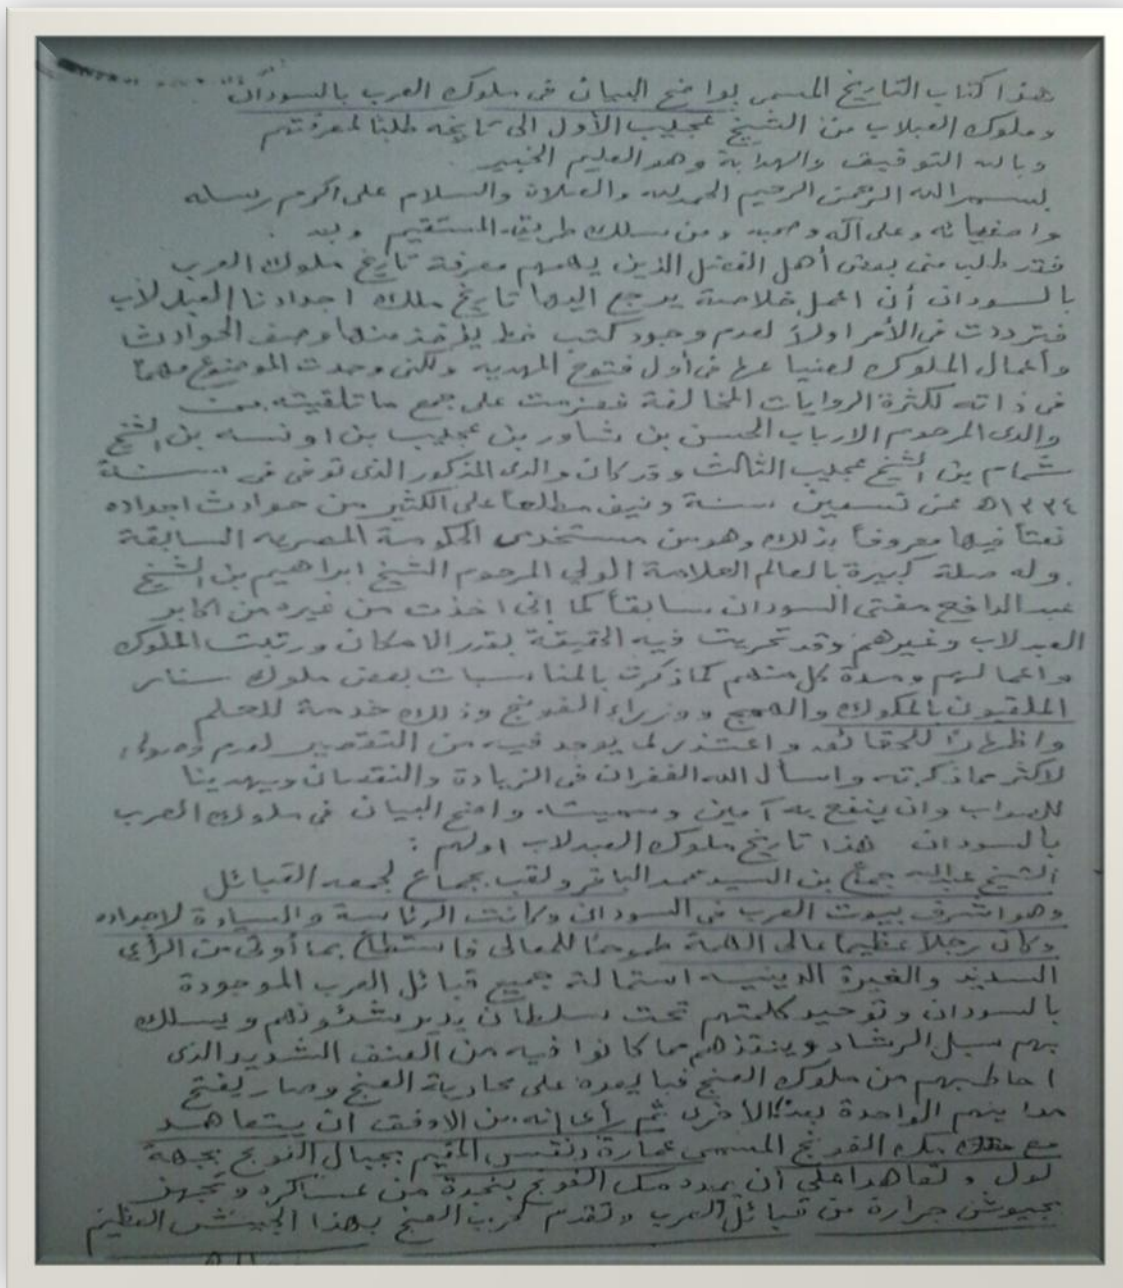 هذا كتاب التاريخ المسمى بواضح البيان فى ملوك العرب بالسودان
وملوك العبدلاب من الشيخ عجيب الأول الى تاريخه طلبا لمعرفتهم
وبالله التوفيق والهداية وهو العليم الخبير
بسم الله الرحمن الرحيم الحمدلله والصلاة والسلام على اكرم رسله
واصفيائه وعلى آله وصحبه ومن سلك طريقه المستقيم وبعد .
فقد طلب منى بعض أهل الفضل الذين يهمهم معرفة تاريخ ملوك العرب
بالسودان أن اعمل خلاصة يرجع اليها تاريخ ملك اجدادنا العبدلاب
فترددت فى الأمر اولاً لعدم وجود كتب خط يؤخذ منها وصف الحوادث
وأعمال الملوك لضياعها فى أول فتوح المهديه ولكنى وجدت الموضوع مهماً
فى ذاته لكثرة الروايات المخالفة فعزمت على جمع ما تلقيته من
والدى المرحوم الارباب الحسن بن شاور بن عجيب بن اونسه بن الشيخ
شمام بن الشيخ عجيب الثالث وقد كان والدى المذكور الذى توفى فى سنة
١٣٣٤ه عن تسعين سنة ونيف مطلعاً على الكثير من حوادث اجداده
ثقتاً فيها معروفاً بذلك وهو من مستخدمى الحكومة المصريه السابقة
وله صلة كبيرة بالعالم العلامة الولي المرحوم الشيخ ابراهيم بن الشيخ
عبد الدافع مفتى السودان سابقاً كما إنى اخذت من غيره من اكابر
العبدلاب وغيرهم وقد تحريت فيه الحقيقة بقدر الامكان ورتبت الملوك
واعمالهم ومدة كل منهم كما ذكرت بالمناسبات بعض ملوك سنار
الملقبون بالمكوك والهمج ووزراء الفونج وذلك خدمة للعلم
واظهاراً للحقائق واعتذر لما يوجد فيه من التقصير لعدم وصولى
لاكثر مما ذكرته واسأل الله الغفران فى الزيادة والنقصان ويهدينا
للصواب وان ينفع به آمين وسميته واضح البيان فى ملوك العرب
بالسودان هذا تاريخ ملوك العبدلاب اولهم :
الشيخ عبدالله جماع بن السيد محمد الباقر ولقب بجماع لجمعه القبائل
وهو اشرف بيوت العرب فى السودان وكانت الرئاسة والسيادة لاجداده
وكان رجلاً عظيماً عالى الهمة طموحاً للمعالى فاستطاع بما أوتى من الرأى
السديد والغيرة الدينيه استمالة جميع قبائل العرب الموجودة
بالسودان وتوحيد كلمتهم تحت سلطان يدير شئونهم ويسلك
بهم سبل الرشاد وينقذهم مما كانوا فيه من العنف الشديد الذى
احاط بهم من ملوك العنج فبايعوه على محاربة العنج وصار يفتح
مداينهم الواحدة بعد الاخرى ثم رأى انه من الاوفق أن يتعاهد
مع مك الفونج المسمى عمارة دنقس المقيم بجبال الفونج بجهة
لول وتعاهدا على أن يمدد مك الفونج بنجدة من عساكره وتجهز
بجيوش جرارة من قبائل العرب وتقدم لحرب العنج بهذا الجيش العظيم